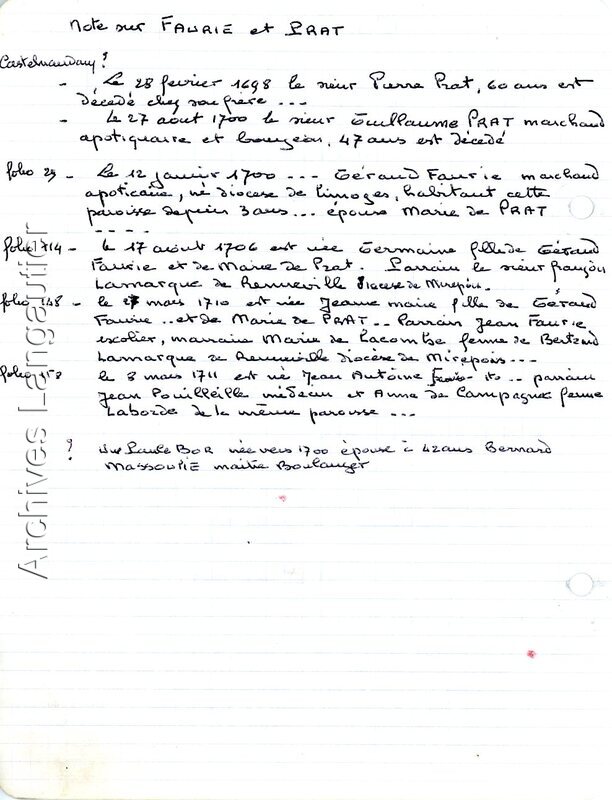 Note sur FAURIE et PRAT
Castelnaudary ?
- Le 28 fevrier 1698 le sieur Pierre Prat, 60 ans est
décédé chez son frère ...
- Le 27 aout 1700 le sieur Guillaume PRAT marchand
apotiquaire et bourgeois, 47 ans est décédé
folio 29 - Le 12 janvier 1700 ... Géraud Faurie marchand
apoticaire, né diocèse de Limoges, habitant cette
paroisse depuis 3 ans ... épouse Marie de PRAT
- - - -
folio 114 - le 17 aout 1706 est née Germaine fille de Géraud
Faurie et de Marie de Prat. Parrain le sieur françois
Lamarque de Renneville Diocèse de Mirepoix.
folio 148 - le mars 1710 est née Jeanne marie fille de Géraud
Faurie .. et de Marie de PRAT .. Parrain Jean Faurie
escolier, marraine Marie de Lacombe femme de Bertrand
Lamarque de Renneville diocèse de Mirepoix ...
folio 158 le 3 mars 1711 est née Jean Antoine .. parrain
Jean Pouilleille médecin et Anne de Campagnes femme
Laborde de la même paroisse ...
? Paule BOR née vers 1700 épouse à 42 ans Bernard
MASSOUTIE maitre Boulanger
Archives Langautier